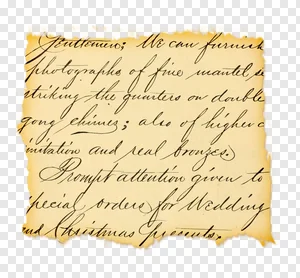 Gentlemen; We can furnish
photographs of fine mantel, s
striking the quarters on double
gong chimes; also of higher c
imitation and real bronzes.
Prompt attention given to
special orders for Wedding
and Christmas presents.